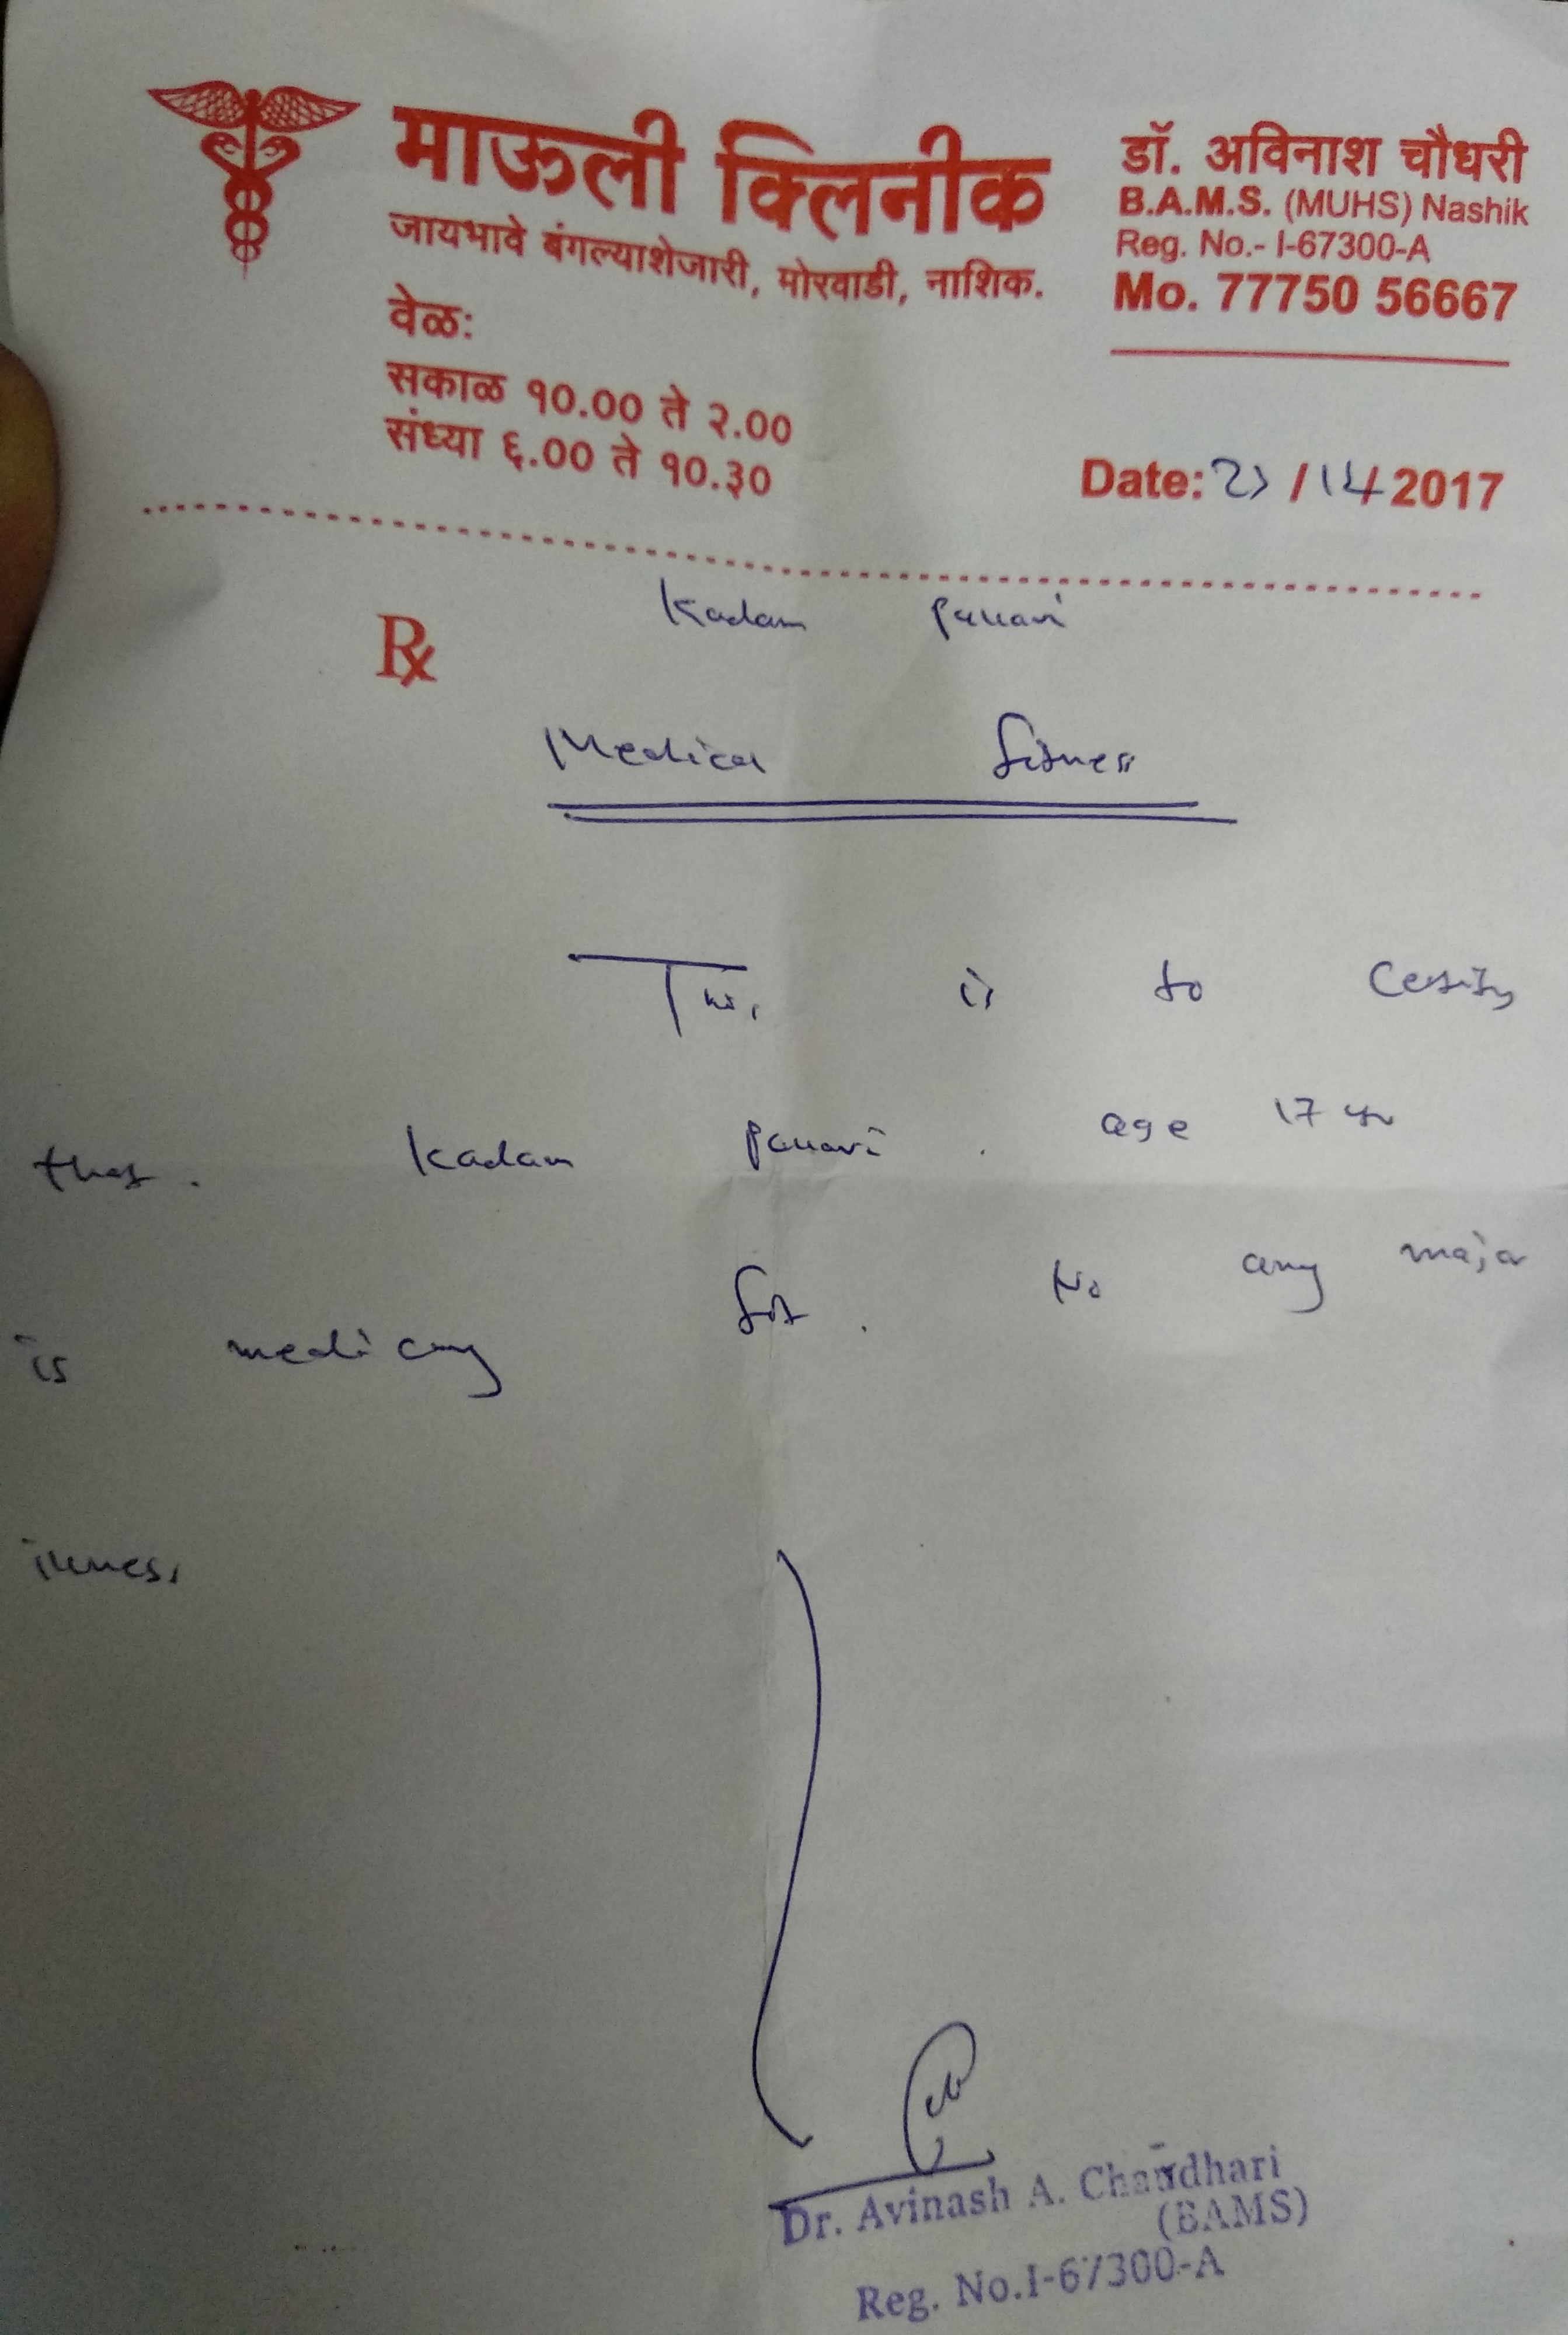 माऊली क्लिनीक
जायभावे बंगल्याशेजारी, मोरवाडी, नाशिक.
वेळ:
सकाळ १०.०० ते २.००
संध्या ६.०० ते १०.३०
डॉ. अविनाश चौधरी
B.A.M.S. (MUHS) Nashik
Reg. No.- I-67300-A
Mo. 77750 56667
Date: / 2017
Kadam
Rx
Medical fitness
This is to Certify
that. Kadam . age 17 yr
is medically fit . No any major
illness
Dr. Avinash A. Chaudhari
(BAMS)
Reg. No.I-67300-A